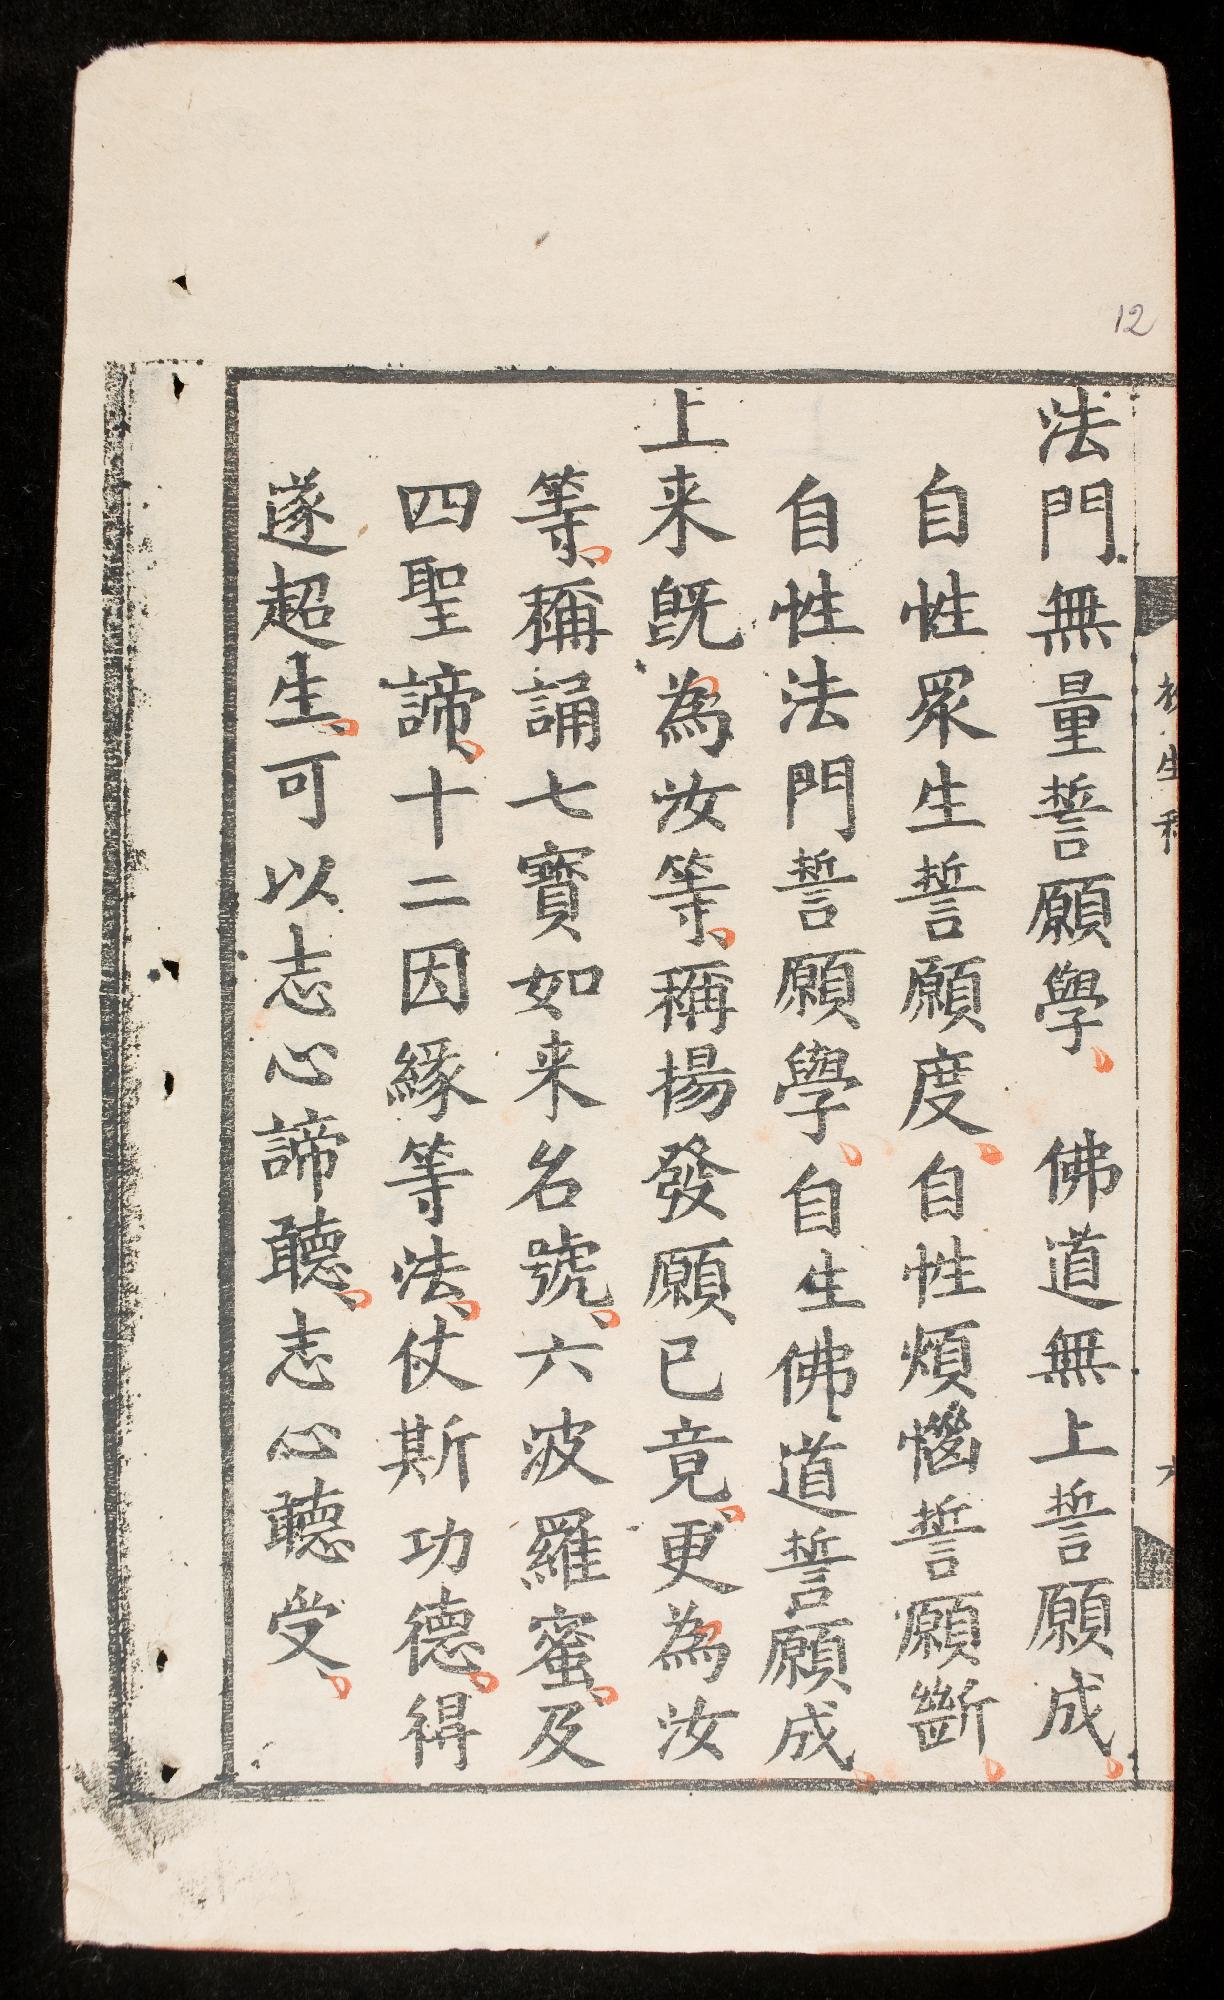 12
法門無量誓願學、　佛道無上誓願成、
自性眾生誓願度、自性煩惱誓願斷、
自性法門誓願學、自生佛道誓願成、
上来既為汝等、稱揚發願已竟、更為汝
等、稱誦七寳如来名號、六波羅蜜、及
四聖諦、十二因緣等法、仗斯功德、得
遂超生、可以志心諦聽、志心聽受、